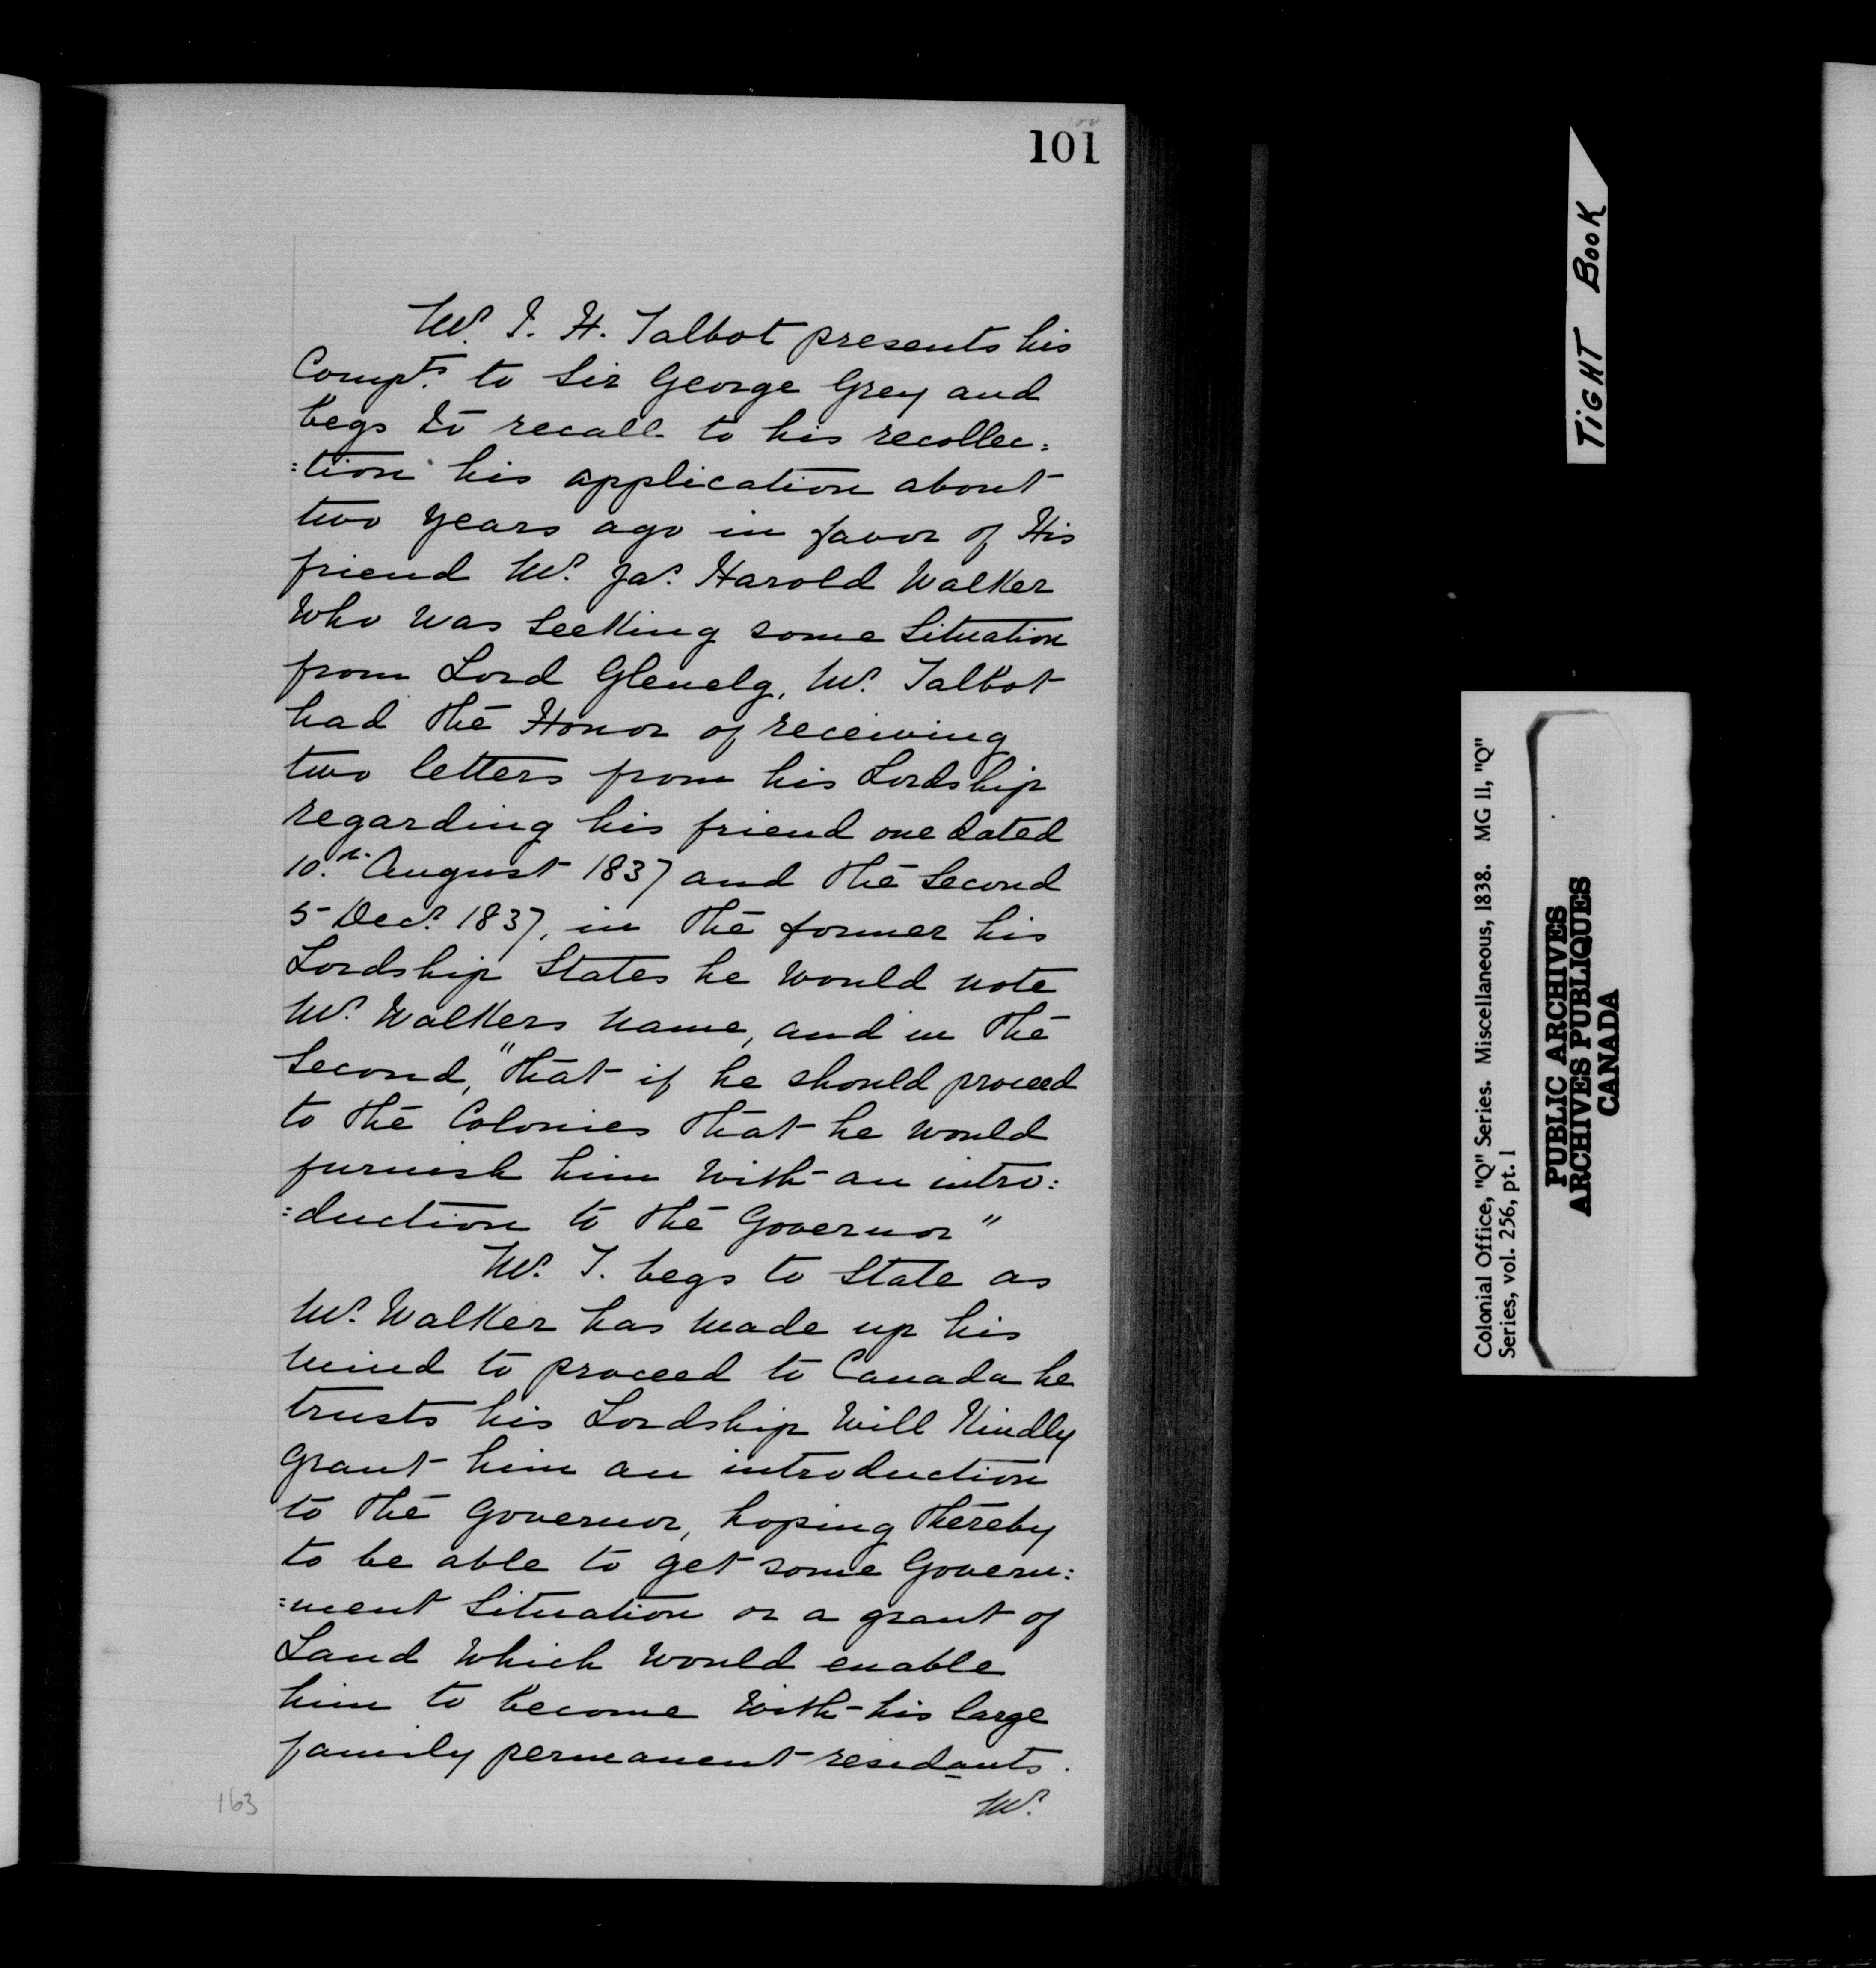 101
Mr. J. H. Talbot presents his
Compts. to Sir George Grey and
begs to recall to his recollec:
:tion his application about
two years ago in favor of His
friend Mr. Jas. Harold Walker
Who was Seeking some Situation
from Lord Glenelg, Mr. Talbot
had the Honor of receiving
two letters from his Lordship
regarding his friend one dated
10.th August 1837 and the Second
5 Decr. 1837, in the former his
Lordship States he would note
Mr. Walkers name, and in the
Second, "that if he should proceed
to the Colonies that he would
furnish him with an intro:
:duction to the Governor"
Mr. T. begs to State as
Mr. Walker has made up his
mind to proceed to Canada he
trusts his Lordship Will Kindly
grant him an introduction
to the Governor, hoping thereby
to be able to get some Govern:
:ment Situation or a grant of
Land Which Would enable
him to become with his large
family permanent residants.
Mr.
163
TIGHT BOOK
Colonial Office, "Q" Series. Miscellaneous, 1838. MG 11, "Q"
Series, vol. 256, pt. 1
PUBLIC ARCHIVES
ARCHIVES PUBLIQUES
CANADA